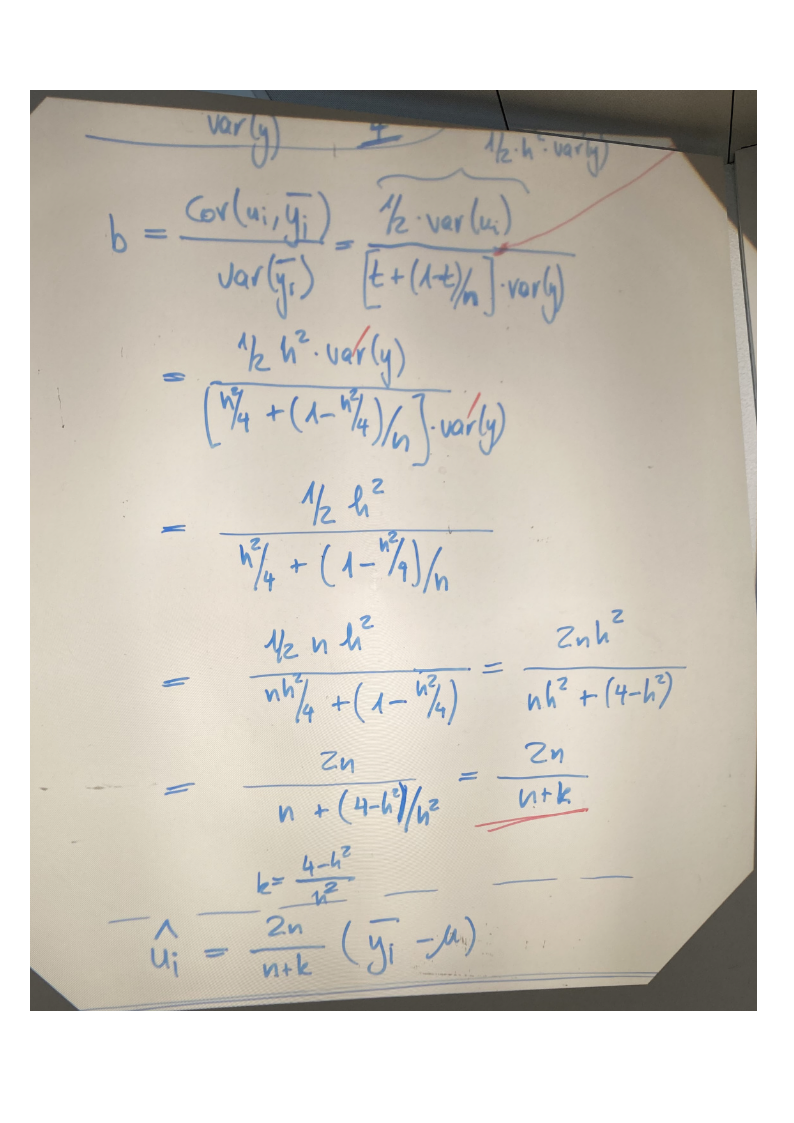 var(y) 4 1/2·h²·var(y)
b = Cov(ui, y̅i) / var(y̅i) = 1/2·var(ui) / [t+(1-t)/n]·var(y)
= 1/2 h²·var(y) / [h²/4 +(1-h²/4)/n]·var(y)
= 1/2 h² / h²/4 + (1-h²/4)/n
= 1/2 n h² / nh²/4 +(1-h²/4) = 2nh² / nh² +(4-h²)
= 2n / n +(4-h²)/h² = 2n / n+k
k= 4-h² / h²
ûi = 2n / n+k (y̅i -μ)